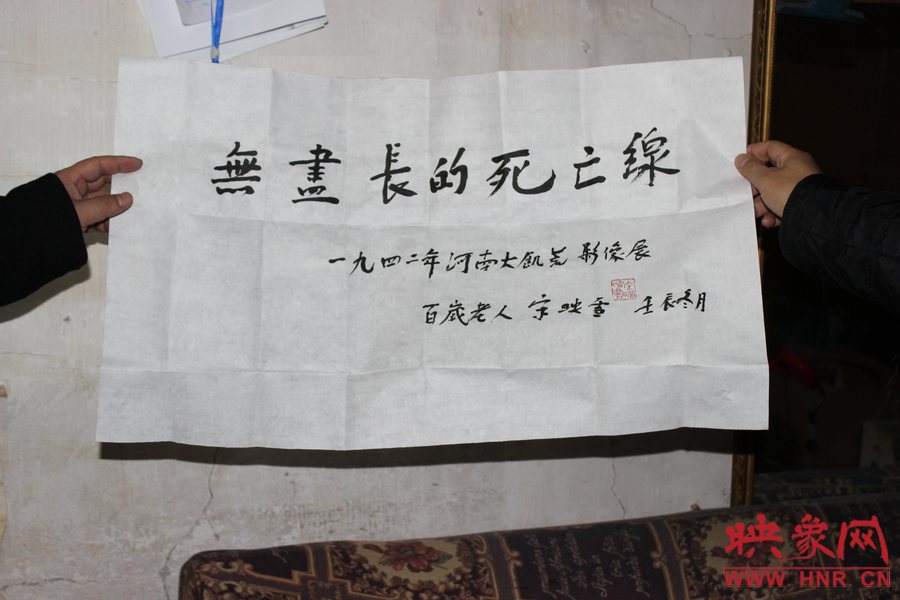 無盡長的死亡線
一九四二年河南大飢荒影像展
百歲老人 宋映雪 壬辰冬月
映象网
WWW.HNR.CN